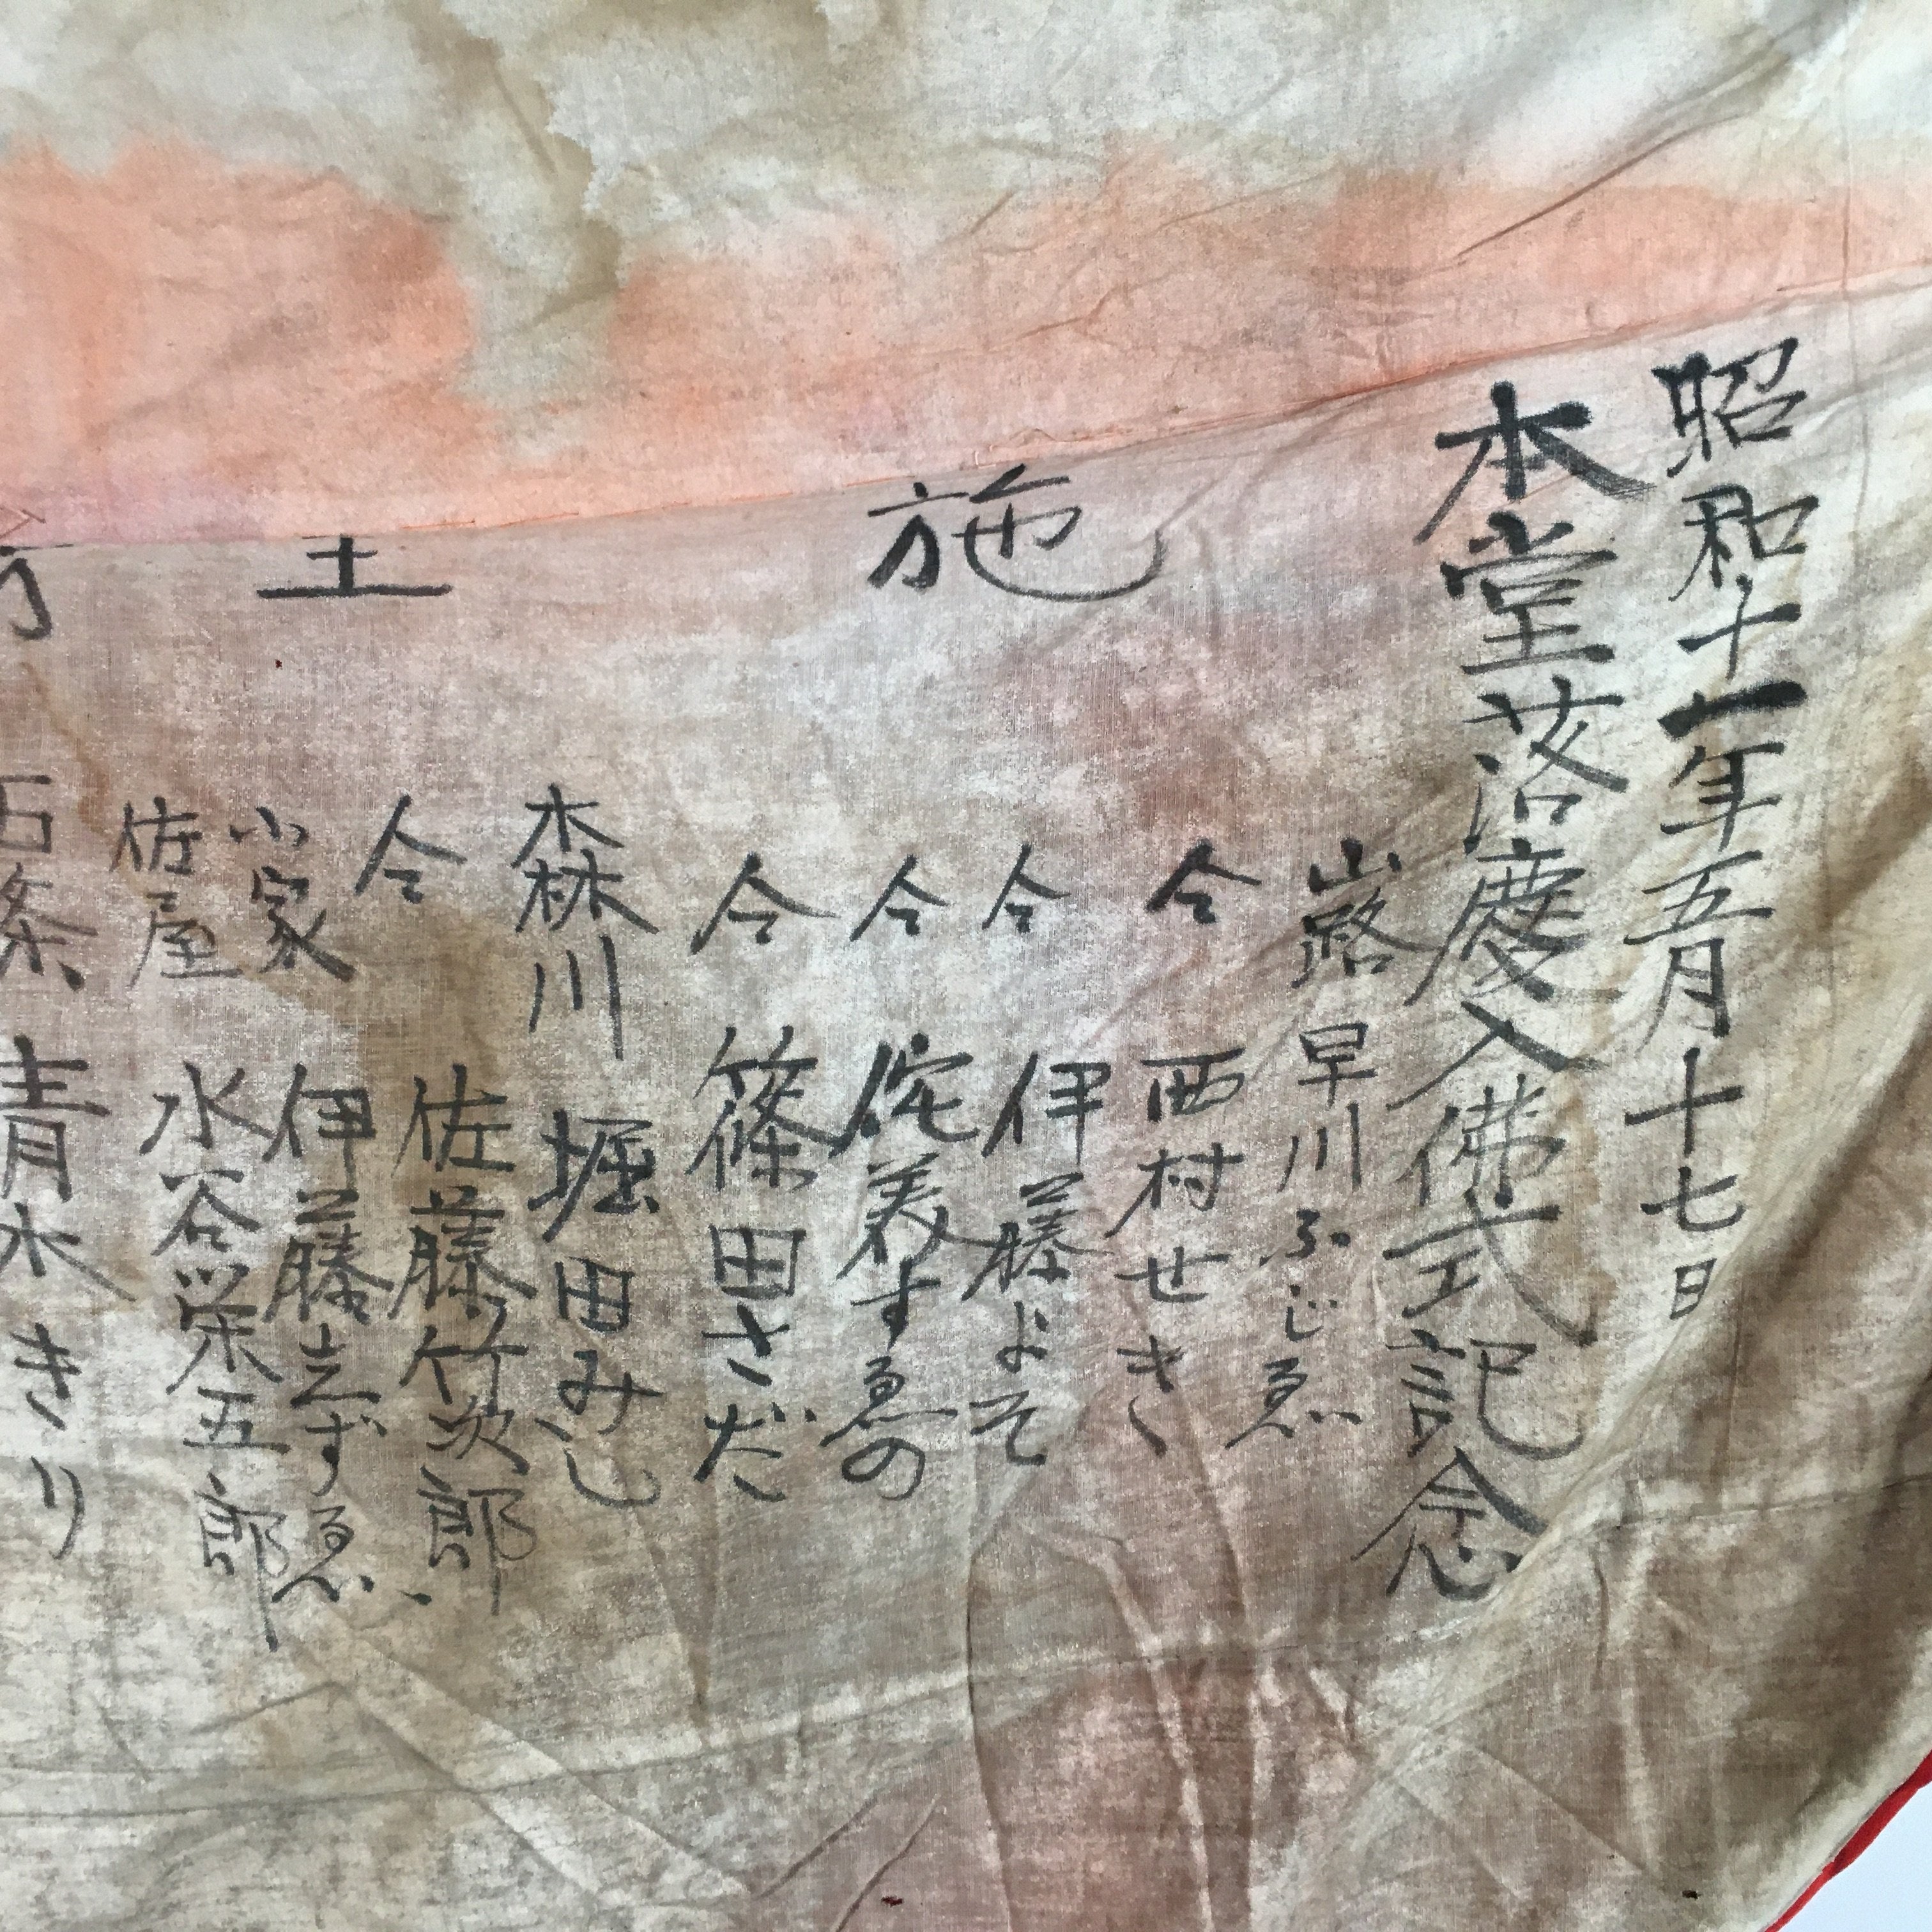 昭和十一年五月十七日
本堂落慶入佛式記念
施主
山路 早川ふじゑ
仝 西村せき
仝 伊藤よそ
仝 佗美すゑの
仝 篠田さだ
森川 堀田みし
仝 佐藤竹次郎
小家 伊藤志ずゑ
佐屋 水谷栄五郎
石条 青木きり